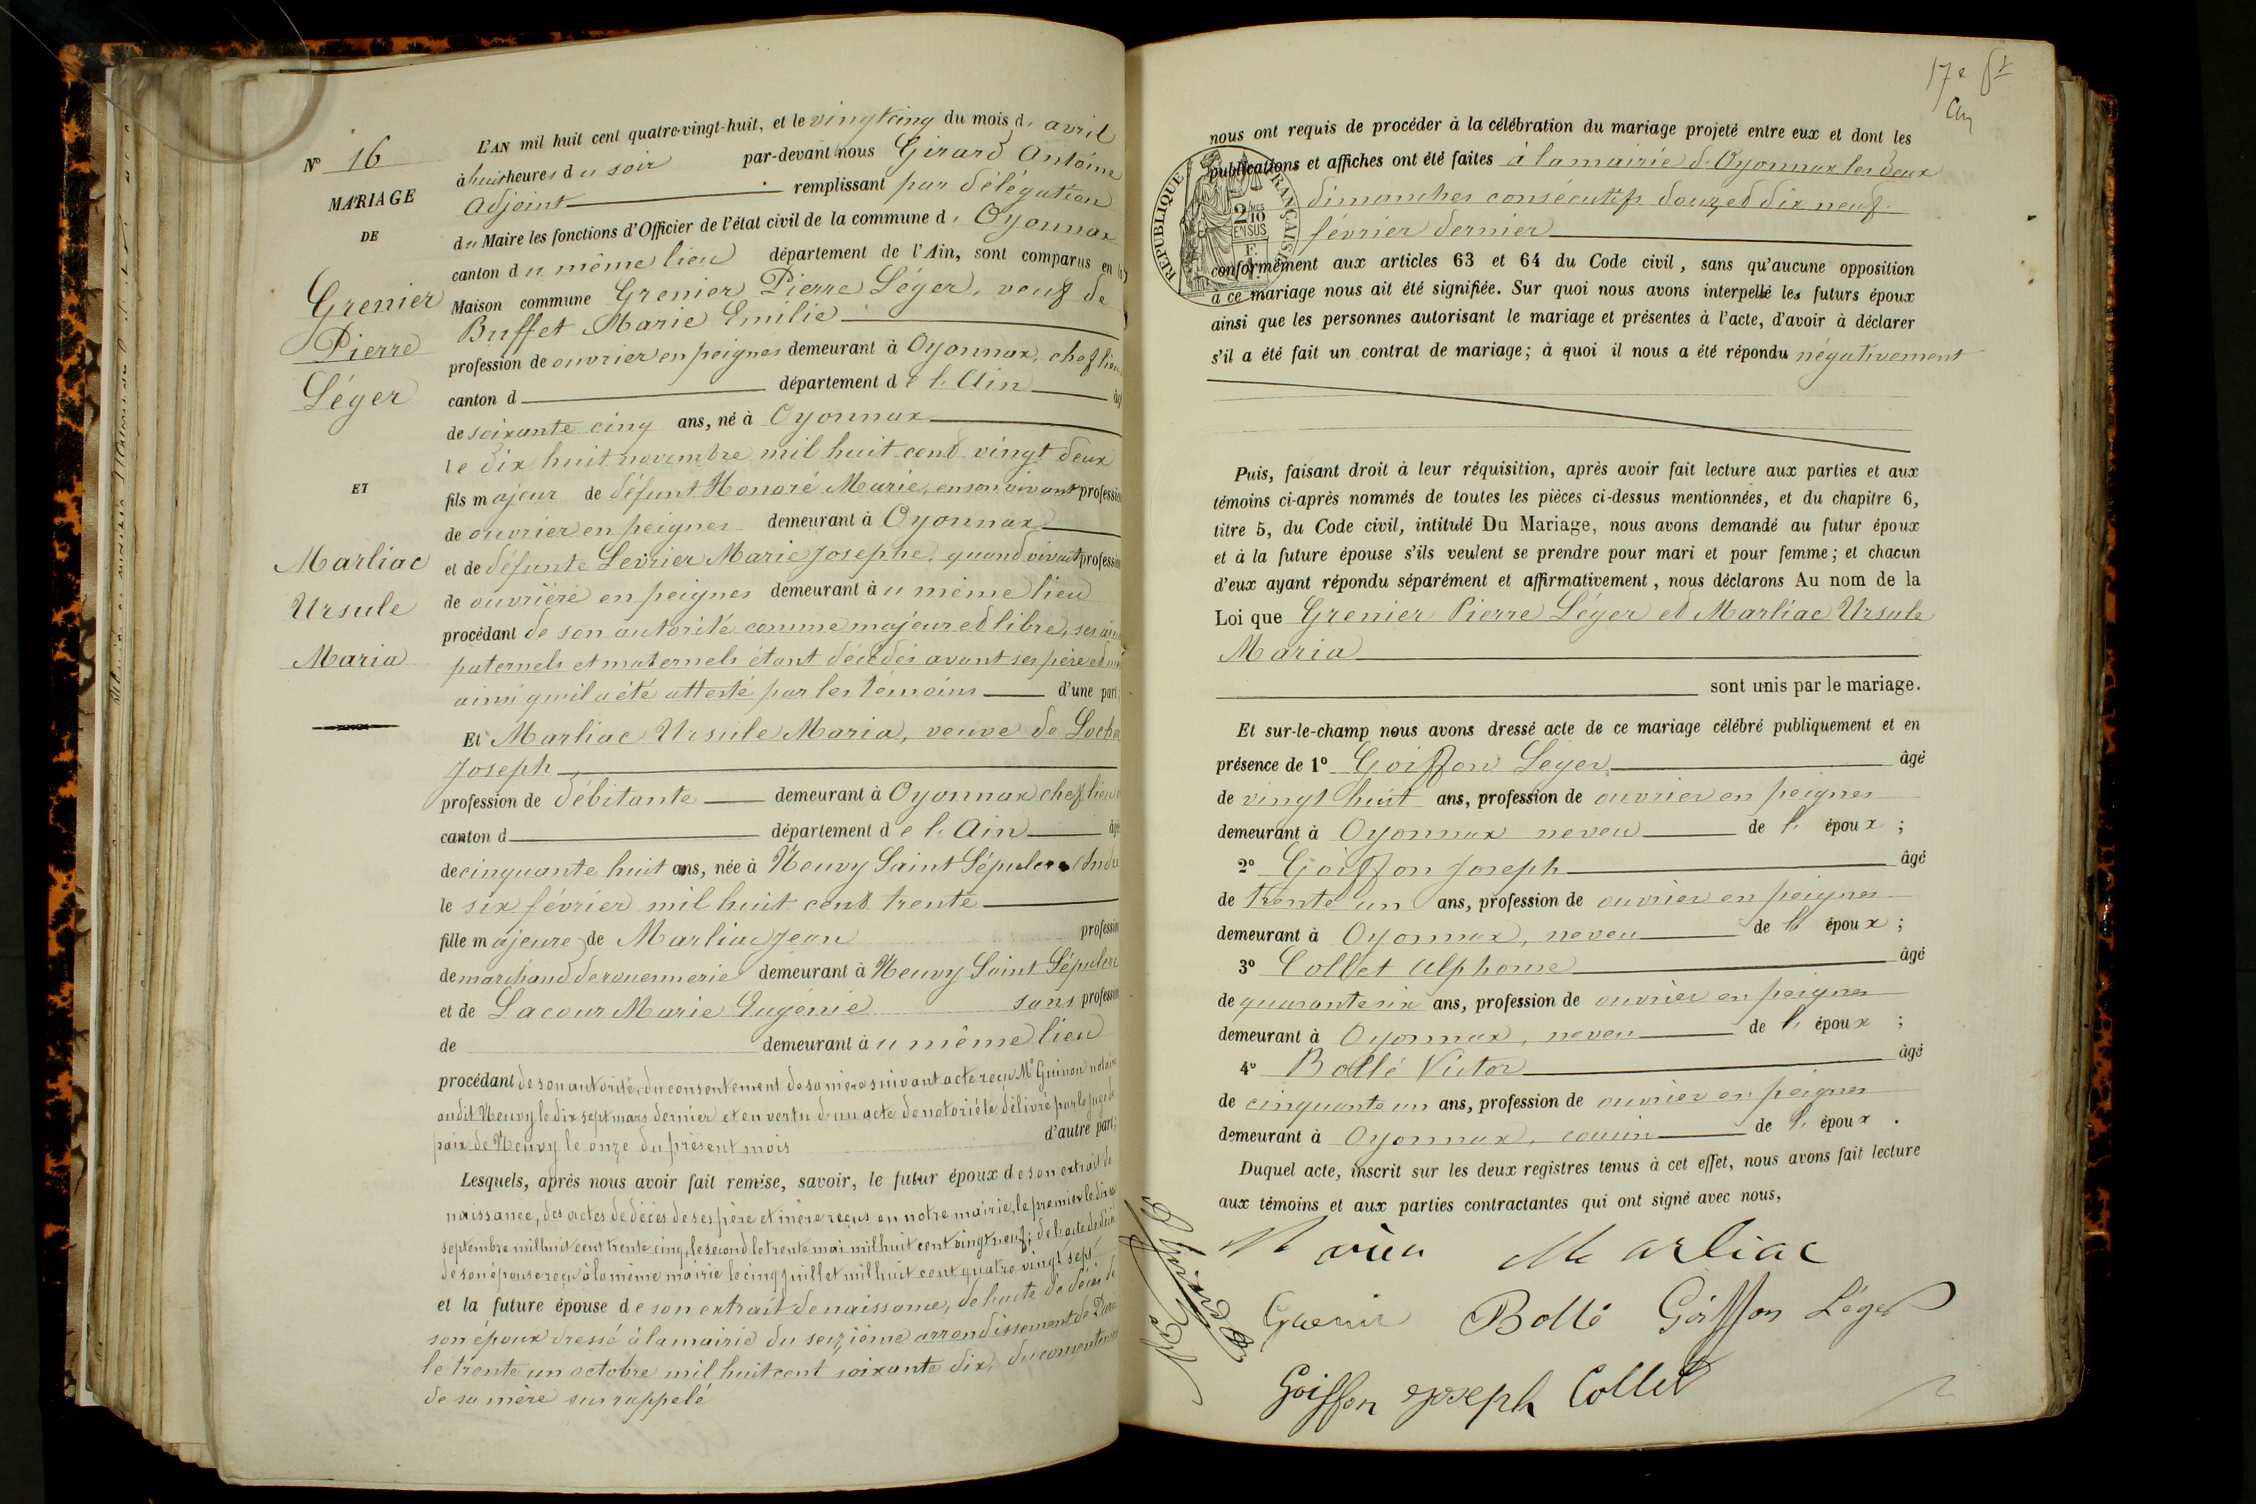 N° 16
MARIAGE
DE
Grenier
Pierre
Léger
ET
Marliac
Ursule
Maria
L'AN mil huit cent quatre-vingt-huit, et le vingt cinq du mois d' avril
à huit heures du soir par-devant nous Girard Antoine
Adjoint remplissant par délégation
du Maire les fonctions d'Officier de l'état civil de la commune d' Oyonnax
canton du même lieu département de l'Ain, sont comparus en la
Maison commune Grenier Pierre Léger, veuf de
Buffet Marie Emilie
profession de ouvrier en peignes demeurant à Oyonnax, chef lieu
canton d département de l'Ain âgé
de soixante cinq ans, né à Oyonnax
le dix huit novembre mil huit cent vingt deux
fils majeur de défunt Honoré Marie, en son vivant profession
de ouvrier en peignes demeurant à Oyonnax
et de défunte Levrier Marie Josephe, quand vivait profession
de ouvrière en peignes demeurant au même lieu
procédant de son autorité comme majeur et libre, ses aieux
paternels et maternels étant décédés avant ses père et mère
ainsi qu'il a été attesté par les témoins d'une part;
Et Marliac Ursule Maria, veuve de
Joseph
profession de débitante demeurant à Oyonnax chef lieu
canton d département de l'Ain âgé
de cinquante huit ans, née à Neuvy Saint Sépulcre (Indre
le six février mil huit cent trente
fille majeure de Marliac Jean profession
de marchand de rouennerie demeurant à Neuvy Saint Sépulcre
et de Lacour Marie Eugénie sans profession
de demeurant au même lieu
procédant de son autorité, du consentement de sa mère suivant acte reçu Me Guinon notaire
audit Neuvy le dix sept mars dernier et en vertu d'un acte de notoriété délivré par le juge de
paix de Neuvy le onze du présent mois d'autre part;
Lesquels, après nous avoir fait remise, savoir, le futur époux de son extrait de
naissance, des actes de décès de ses père et mère reçus en notre mairie, le premier le
septembre mil huit cent trente cinq, le second le trente mai mil huit cent vingt neuf; de l'acte de décès
de son épouse reçu à la même mairie le cinq juillet mil huit cent quatre vingt sept
et la future épouse de son extrait de naissance, de l'acte de décès de
son époux dressé à la mairie du seizième arrondissement de Paris
le trente un octobre mil huit cent soixante dix, du consentement
de sa mère sus rappelé
17e
nous ont requis de procéder à la célébration du mariage projeté entre eux et dont les
publications et affiches ont été faites à la mairie d'Oyonnax les deux
dimanches consécutifs douze et dix neuf
février dernier
RÉPUBLIQUE FRANÇAISE
2/10
EN SUS
conformément aux articles 63 et 64 du Code civil, sans qu'aucune opposition
à ce mariage nous ait été signifiée. Sur quoi nous avons interpellé les futurs époux
ainsi que les personnes autorisant le mariage et présentes à l'acte, d'avoir à déclarer
s'il a été fait un contrat de mariage; à quoi il nous a été répondu négativement
Puis, faisant droit à leur réquisition, après avoir fait lecture aux parties et aux
témoins ci-après nommés de toutes les pièces ci-dessus mentionnées, et du chapitre 6,
titre 5, du Code civil, intitulé Du Mariage, nous avons demandé au futur époux
et à la future épouse s'ils veulent se prendre pour mari et pour femme; et chacun
d'eux ayant répondu séparément et affirmativement, nous déclarons Au nom de la
Loi que Grenier Pierre Léger et Marliac Ursule
Maria
sont unis par le mariage.
Et sur-le-champ nous avons dressé acte de ce mariage célébré publiquement et en
présence de 1° Goiffon Léger âgé
de vingt huit ans, profession de ouvrier en peignes
demeurant à Oyonnax neveu de l' époux;
2° Goiffon Joseph âgé
de trente un ans, profession de ouvrier en peignes
demeurant à Oyonnax, neveu de l' époux;
3° Collet Alphonse âgé
de quarante six ans, profession de ouvrier en peignes
demeurant à Oyonnax, neveu de l' époux;
4° Bollé Victor âgé
de cinquante un ans, profession de ouvrier en peignes
demeurant à Oyonnax, cousin de l' époux.
Duquel acte, inscrit sur les deux registres tenus à cet effet, nous avons fait lecture
aux témoins et aux parties contractantes qui ont signé avec nous,
Maria Marliac
Grenier Bollé Goiffon Léger
Goiffon joseph Collet
Girard